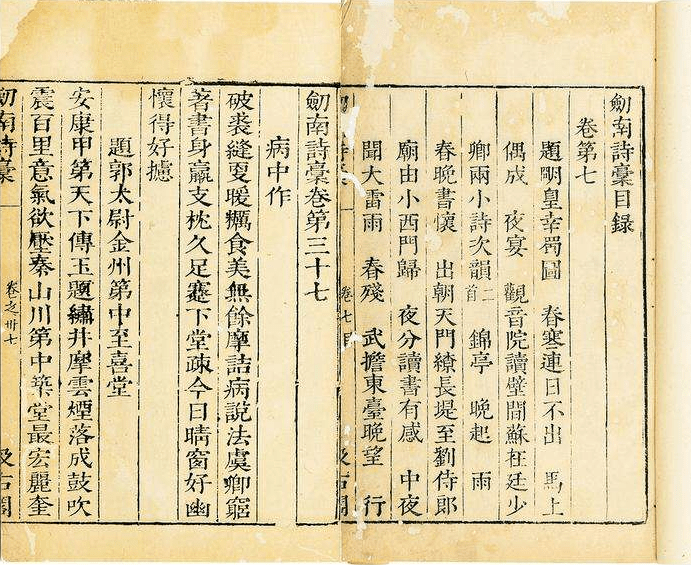 劒南詩稾目錄
卷第七
題明皇幸蜀圖 春寒連日不出 馬上
偶成 夜宴 觀音院讀壁間蘇在廷少
卿兩小詩次韻二首 錦亭 晚起 雨
春晚書懷 出朝天門繚長堤至劉侍郎
廟由小西門歸 夜分讀書有感 中夜
聞大雷雨 春殘 武擔東臺晚望 行
卷七 目
劒南詩稾卷第三十七
病中作
破裘縫更暖糲食美無餘摩詰病說法虞卿窮
著書身羸支枕久足蹇下堂疎今日晴窗好幽
懷得好攄
題郭太尉金州第中至喜堂
安康甲第天下傳玉題繡井摩雲煙落成鼓吹
震百里意氣欲壓秦山川第中築堂最宏麗奎
劒南詩稾
卷之卅七
汲古閣